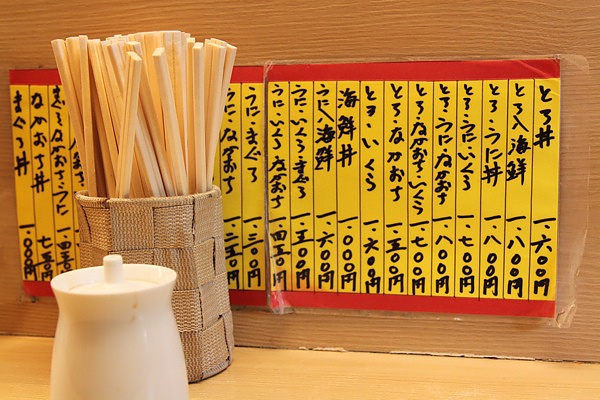 とろ丼 一.六〇〇円
とろ入海鮮 一.八〇〇円
とろ・うに丼 一.八〇〇円
とろ・うに・いくら 一.七〇〇円
とろ・うに・なかおち 一.八〇〇円
とろ・なかおち・いくら 一.七〇〇円
とろ・なかおち 一.五〇〇円
とろ・いくら 一.六〇〇円
海鮮丼 一.〇〇〇円
うに入海鮮 一.六〇〇円
うに・いくら・まぐろ 一.五〇〇円
うに・いくら・なかおち 一.四五〇円
うに・まぐろ 一.三〇〇円
うに・なかおち
まぐろ・なかおち・うに 一.四五〇
なかおち丼 七五〇円
まぐろ丼 一.〇〇〇円